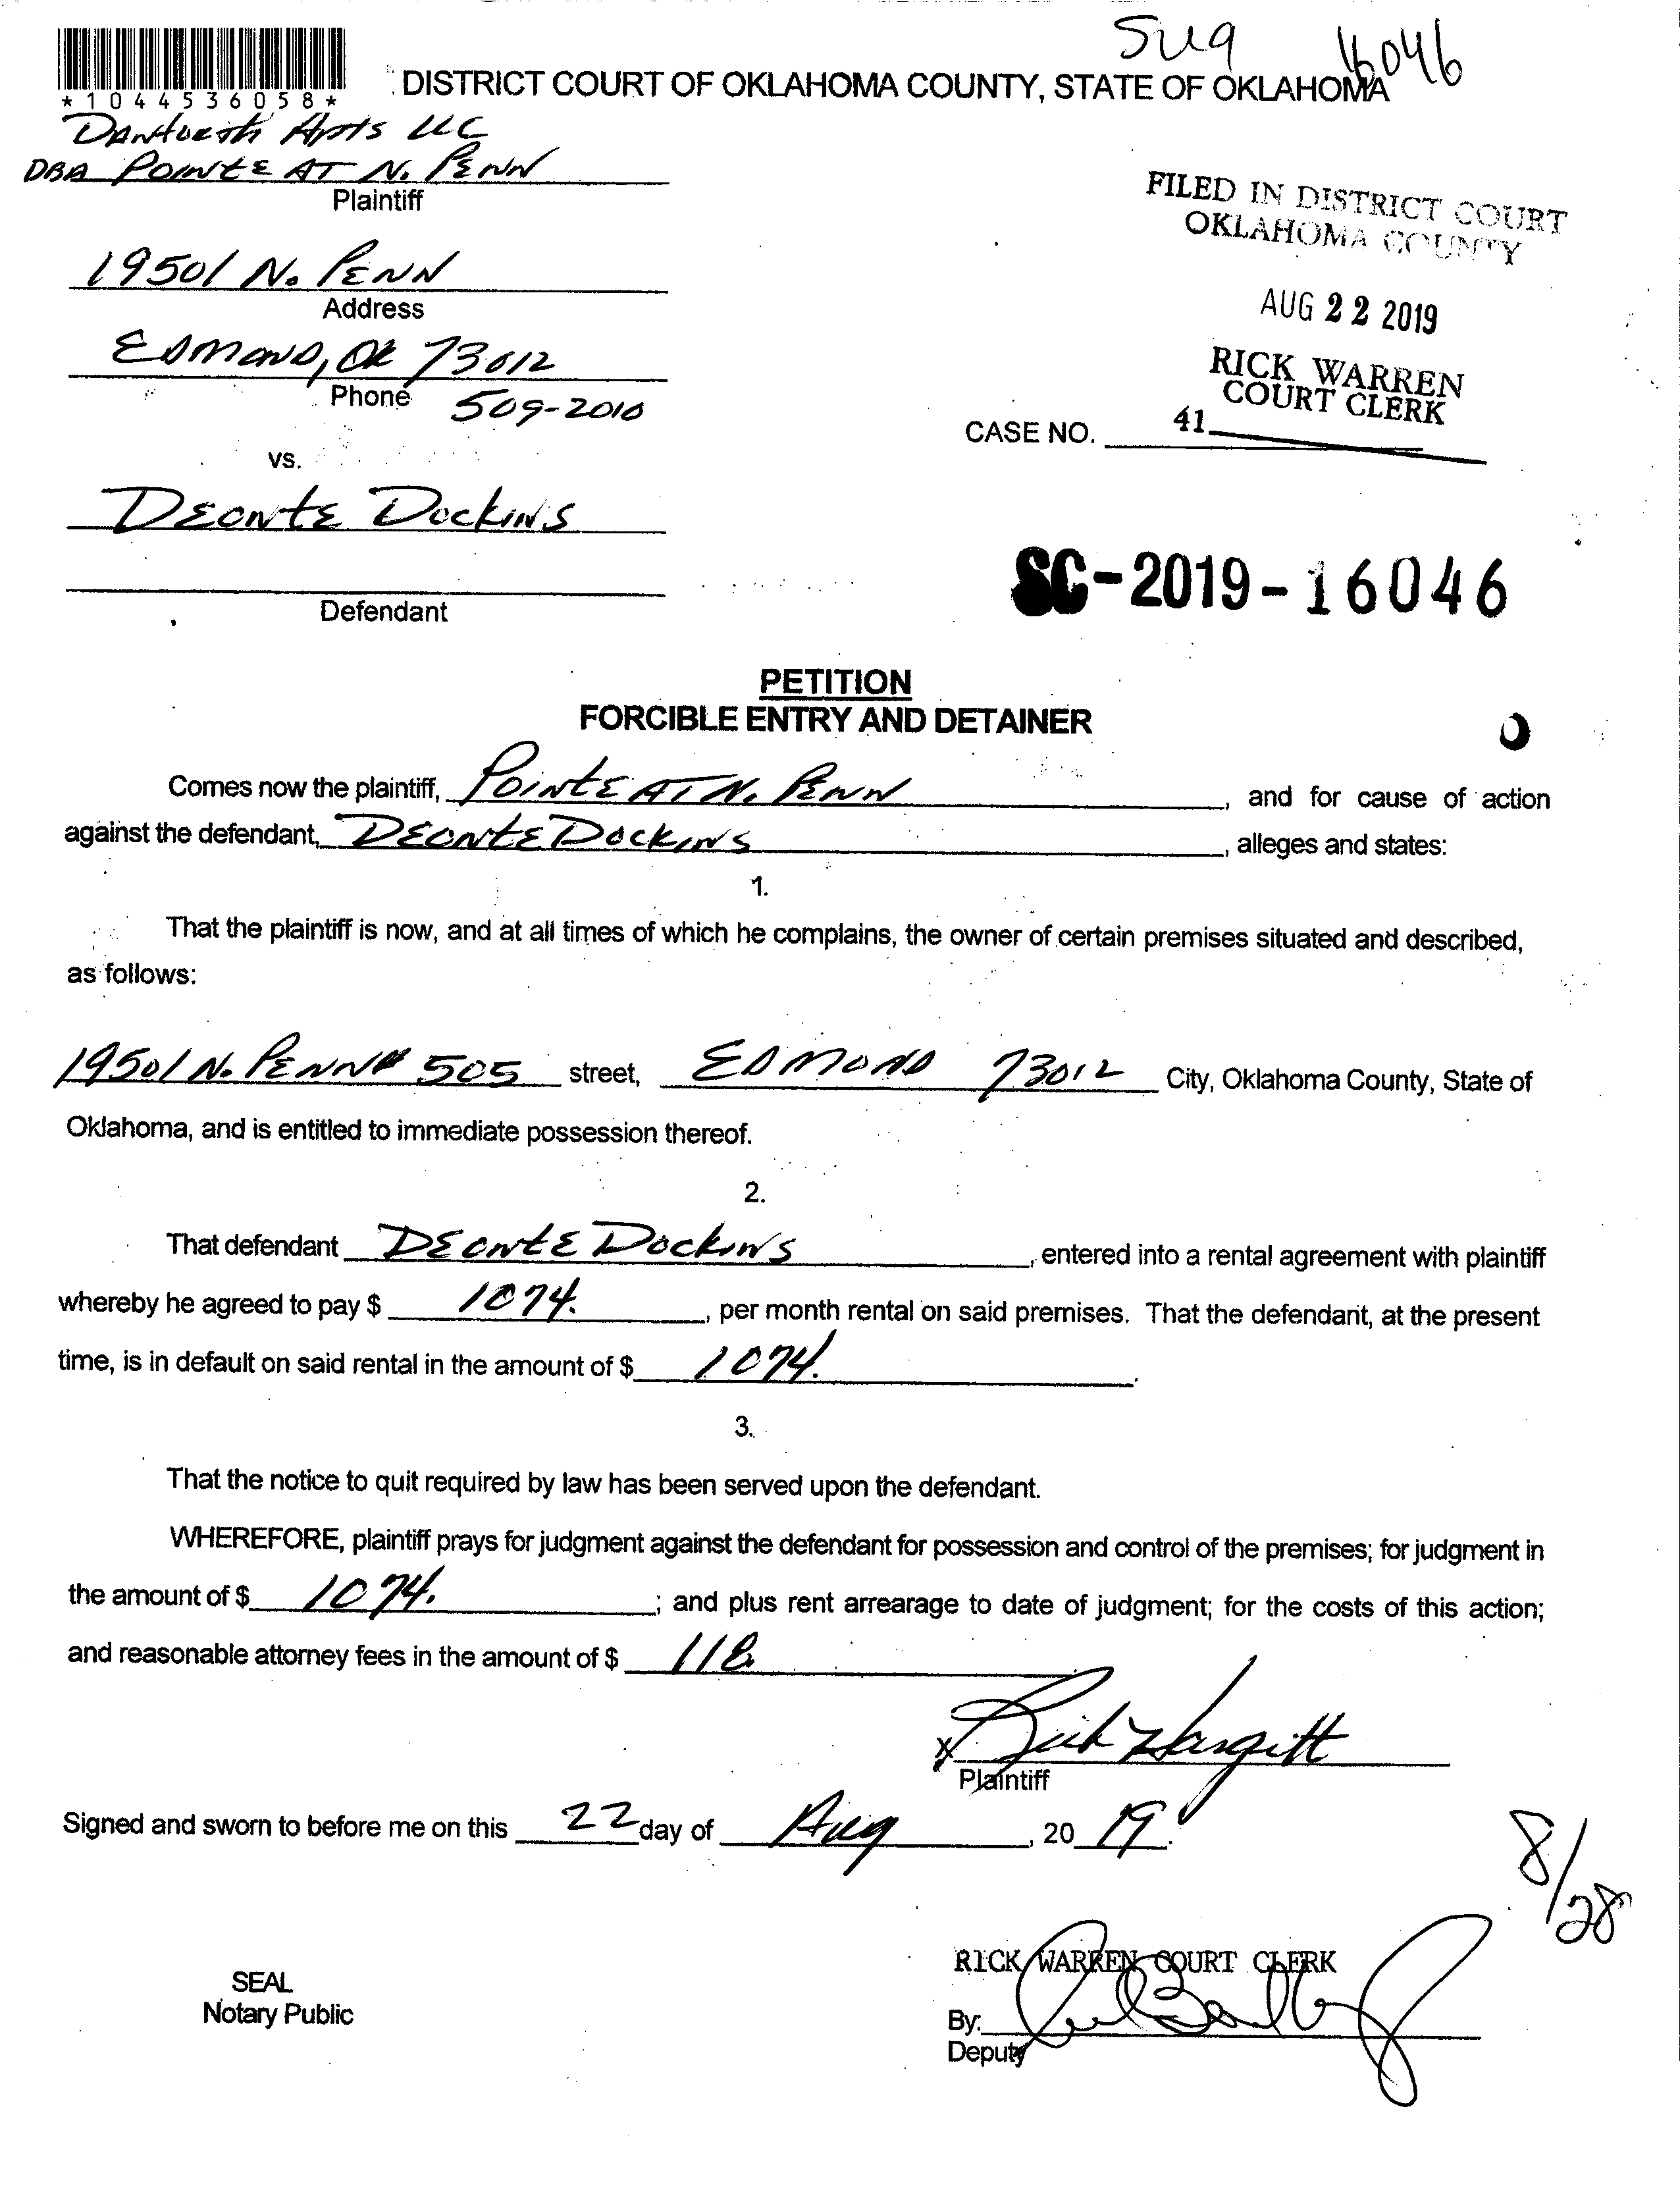 Sug 16046
*1044536058*
DISTRICT COURT OF OKLAHOMA COUNTY, STATE OF OKLAHOMA
Danforth Apts LLC
DBA Pointe at N. Penn
Plaintiff
FILED IN DISTRICT COURT
OKLAHOMA COUNTY
19501 N. Penn
Address
AUG 22 2019
Edmond, Ok 73012
RICK WARREN
COURT CLERK
Phone 509-2010
41
CASE NO.
vs.
Deonte Dockins
SC-2019-16046
Defendant
PETITION
FORCIBLE ENTRY AND DETAINER
Comes now the plaintiff, Pointe at N. Penn, and for cause of action
against the defendant, Deonte Dockins, alleges and states:
1.
That the plaintiff is now, and at all times of which he complains, the owner of certain premises situated and described,
as follows:
19501 N. Penn # 505 street, Edmond 73012 City, Oklahoma County, State of
Oklahoma, and is entitled to immediate possession thereof.
2.
That defendant Deonte Dockins, entered into a rental agreement with plaintiff
whereby he agreed to pay $ 1074., per month rental on said premises. That the defendant, at the present
time, is in default on said rental in the amount of $ 1074.
3.
That the notice to quit required by law has been served upon the defendant.
WHEREFORE, plaintiff prays for judgment against the defendant for possession and control of the premises; for judgment in
the amount of $ 1074. ; and plus rent arrearage to date of judgment; for the costs of this action;
and reasonable attorney fees in the amount of $ 118.
X Rick Hargitt
Plaintiff
Signed and sworn to before me on this 22 day of Aug, 20 19.
8/28
RICK WARREN COURT CLERK
SEAL
Notary Public
By:
Deputy